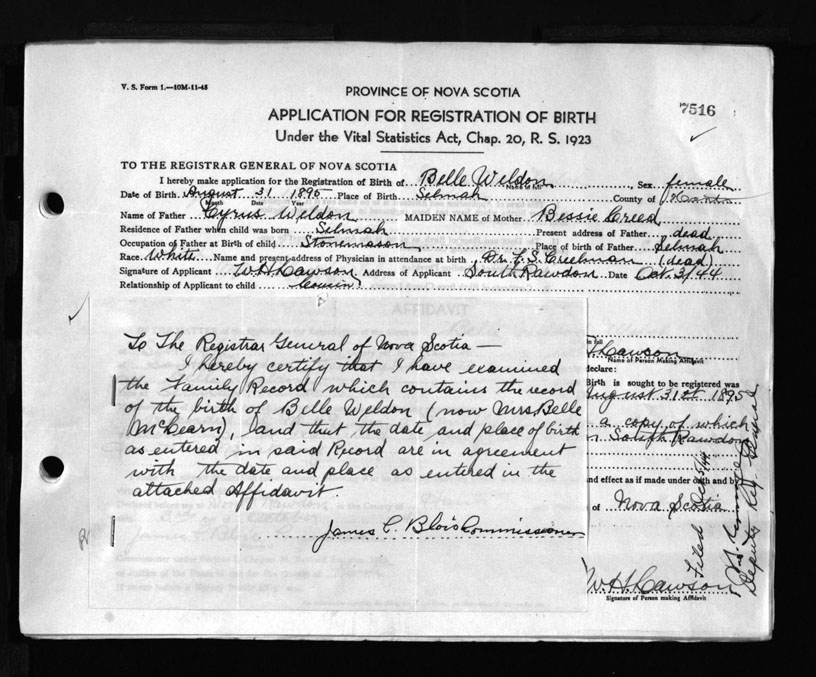 V. S. Form 1.—10M-11-43
PROVINCE OF NOVA SCOTIA
7516
APPLICATION FOR REGISTRATION OF BIRTH
Under the Vital Statistics Act, Chap. 20, R. S. 1923
TO THE REGISTRAR GENERAL OF NOVA SCOTIA
I hereby make application for the Registration of Birth of Belle Weldon, Sex female
Name in full
Date of Birth August 31 1895 Place of Birth Selmah County of Hants
Month Date Year
Name of Father Cyrus Weldon MAIDEN NAME of Mother Bessie Creed
Residence of Father when child was born Selmah Present address of Father dead
Occupation of Father at Birth of child Stonemason Place of birth of Father Selmah
Race White Name and present address of Physician in attendance at birth Dr. Creelman (dead)
Signature of Applicant W H Lawson Address of Applicant South Rawdon Date Oct. 3/44
Relationship of Applicant to child Cousin
AFFIDAVIT
To The Registrar General of Nova Scotia —
I hereby certify that I have examined
the Family Record which contains the record
of the birth of Belle Weldon (now Mrs Belle
McLearn), and that the date and place of birth
as entered in said Record are in agreement
with the date and place as entered in the
attached Affidavit.
James C. Blois Commissioner
Lawson
Name of Person Making Affidavit
declare:
Birth is sought to be registered was
August 31st 1895
a copy of which
South Rawdon
and effect as if made under oath and by
of Nova Scotia
W H Lawson
Signature of Person making Affidavit
Filed Oct 5/44
Deputy Reg. General